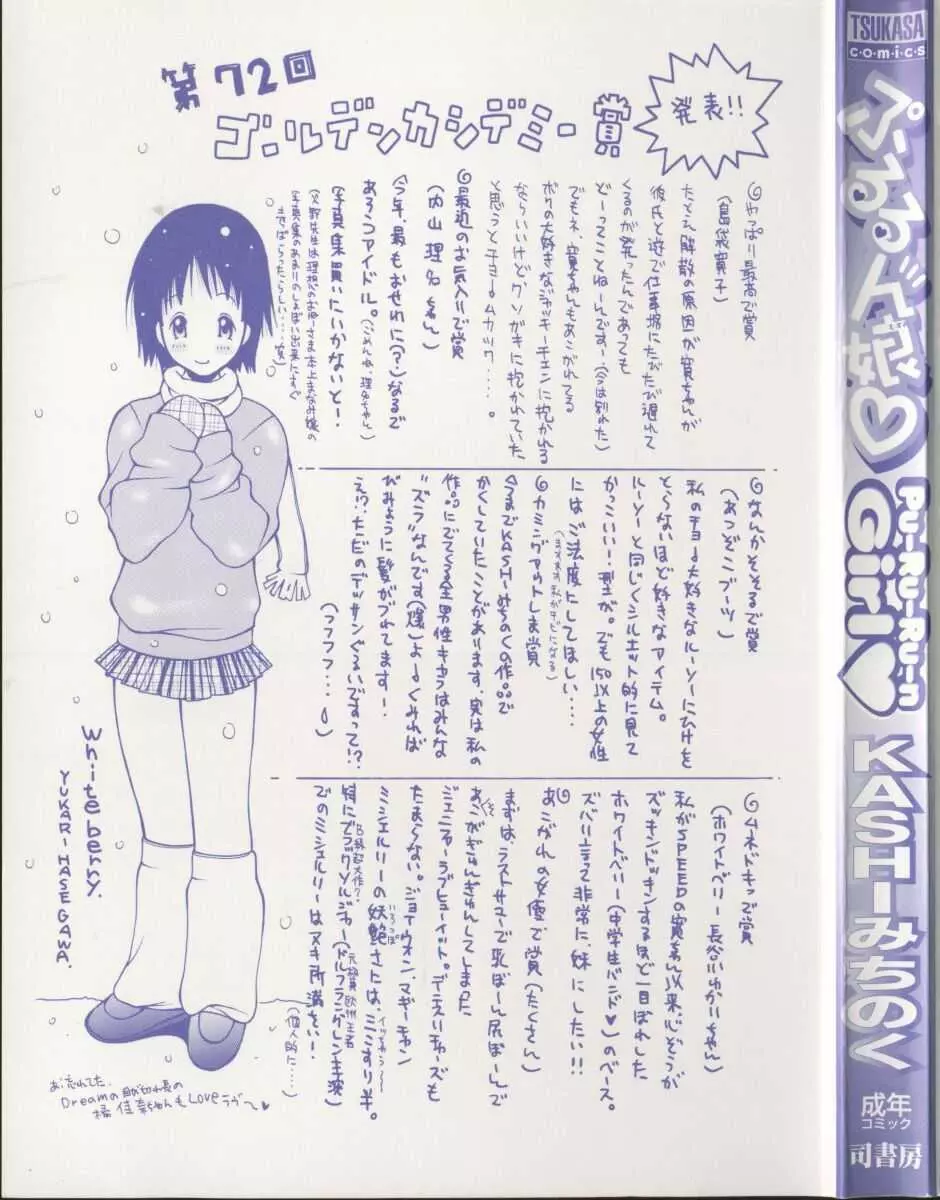 第72回
ゴールデンカシデミー賞
発表!!
◎やっぱり最高で賞
(島袋寛子)
たとえ解散の原因が寛ちゃんが
彼氏と遊で仕事場にたびたび遅れて
くるのが発ったんであっても
どーってことねーんです…(今は別れた)
でもネ、寛ちゃんもあこがれてる
ボクの大好きなジャッキーチェンに抱かれる
ならいいけど、クソガキに抱かれていた
と思うとチョームカック…。
◎最近のお気入りで賞
(内山理名ちゃん)
今年、最もおせわに(?)なるで
あろうアイドル。(ごめんね、理名ちゃん)
写真集買いたいかないと!
◎なんかそそるで賞
(あつぞこブーツ)
私のチョー大好きなルーソーにひけを
とらないほど好きなアイテム。
ルーソーと同じくシルエット的に見て
かっこいい!型が。でも150以上の女性
にはご法度にしてほしい…。
◎カミングアウトしま賞
今までKASHIみちのくの作品で
かくしていたことがあります。実は私の
作品にでてくる全男性キャラはみんな
"ズラ"なんです(爆)よーくみれば
びみょうに髪がづれてます!
え!?ただのデッサンぐるいですって!?
(フフフフ…)
◎ムネドキッで賞
(ホワイトベリー 長谷川ゆかりちゃん)
私がSPEEDの寛ちゃん以来、心ぞうが
ズッキンドッキンするほど一目ぼれした
ホワイトベリー(中学生バンド♥)のベース。
ズバリ言って非常に、妹にしたい!!
◎あこがれの女優で賞(たくさん)
まずは、ラストサマーで乳ぼーん尻ぼーんで
ジェニファーラブヒューイット。デニスリチャーズも
たまらない。ジョイウォン、マギーチャン
ミシェルリーの妖艶さたは、
特にブラックソルジャー(ドルフラングレン主演)
でのミシェルリーはヌキ所満さい!
(個人的に…)
White berry.
YUKARI・HASEGAWA.
お忘れてた、
Dreamの
橘佳奈ちゃんもLoveラヴ〜♥
TSUKASA
comics
ぷるるん娘♡
PU-RU-RU-n
Girl♡
KASHIみちのく
成年
コミック
司書房